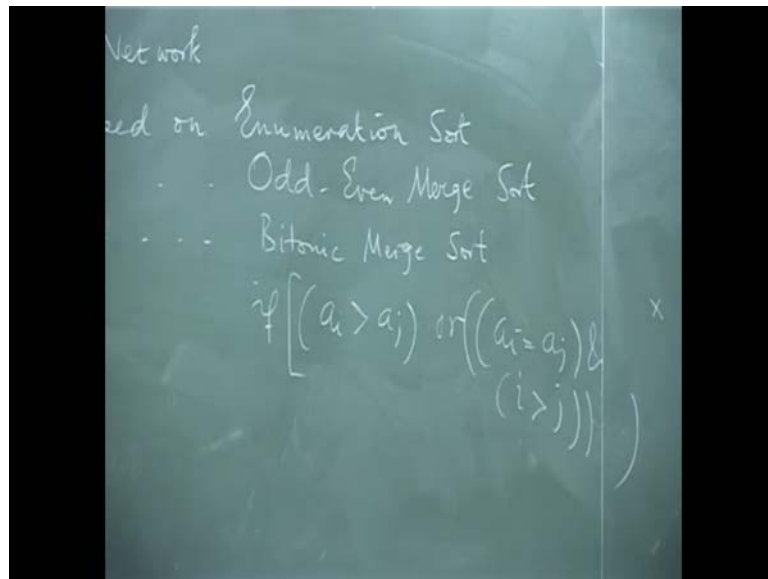 Network
sed on Enumeration Sort
. . Odd-Even Merge Sort
. . . . Bitonic Merge Sort
if [(ai > aj) or ((ai = aj) &
(i > j)) )
x